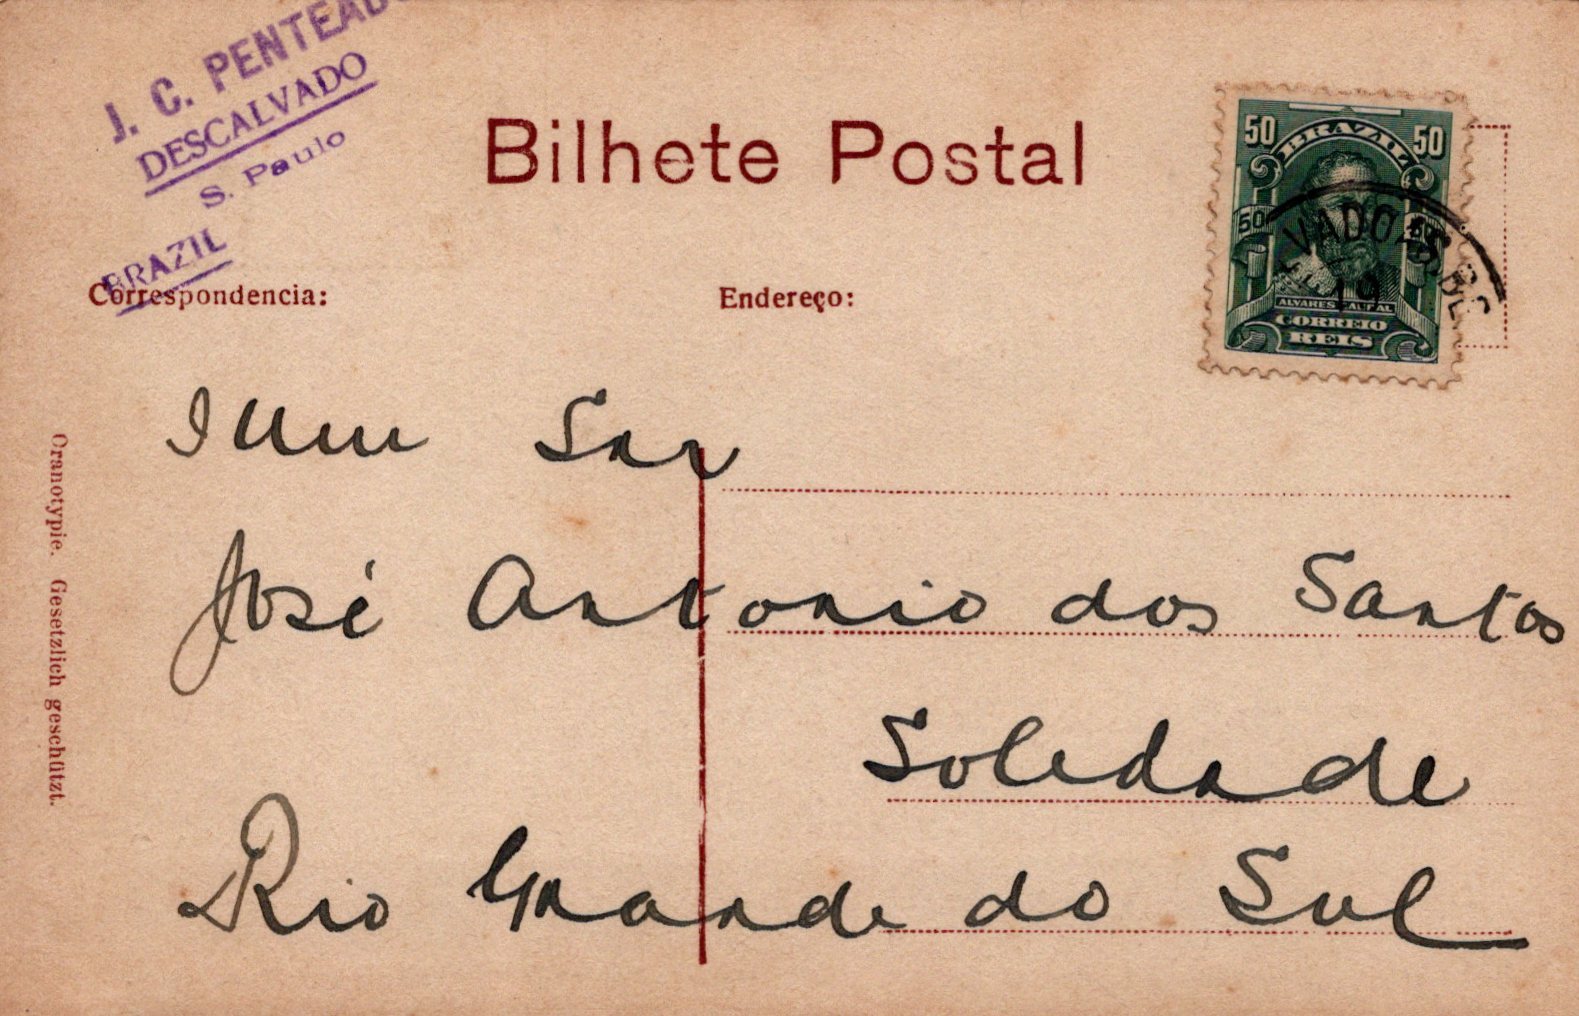 J. C. PENTEADO
DESCALVADO
S. Paulo
BRAZIL
Bilhete Postal
50 BRAZIL 50
50 50
ALVARES CABRAL
CORREIO
REIS
VADO
19
Correspondencia:
Endereço:
Illm Snr
José Antonio dos Santos
Soledade
Rio Grande do Sul
Cranotypie. Gesetzlich geschützt.